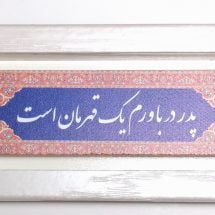 پدر در باورم یک قهرمان است